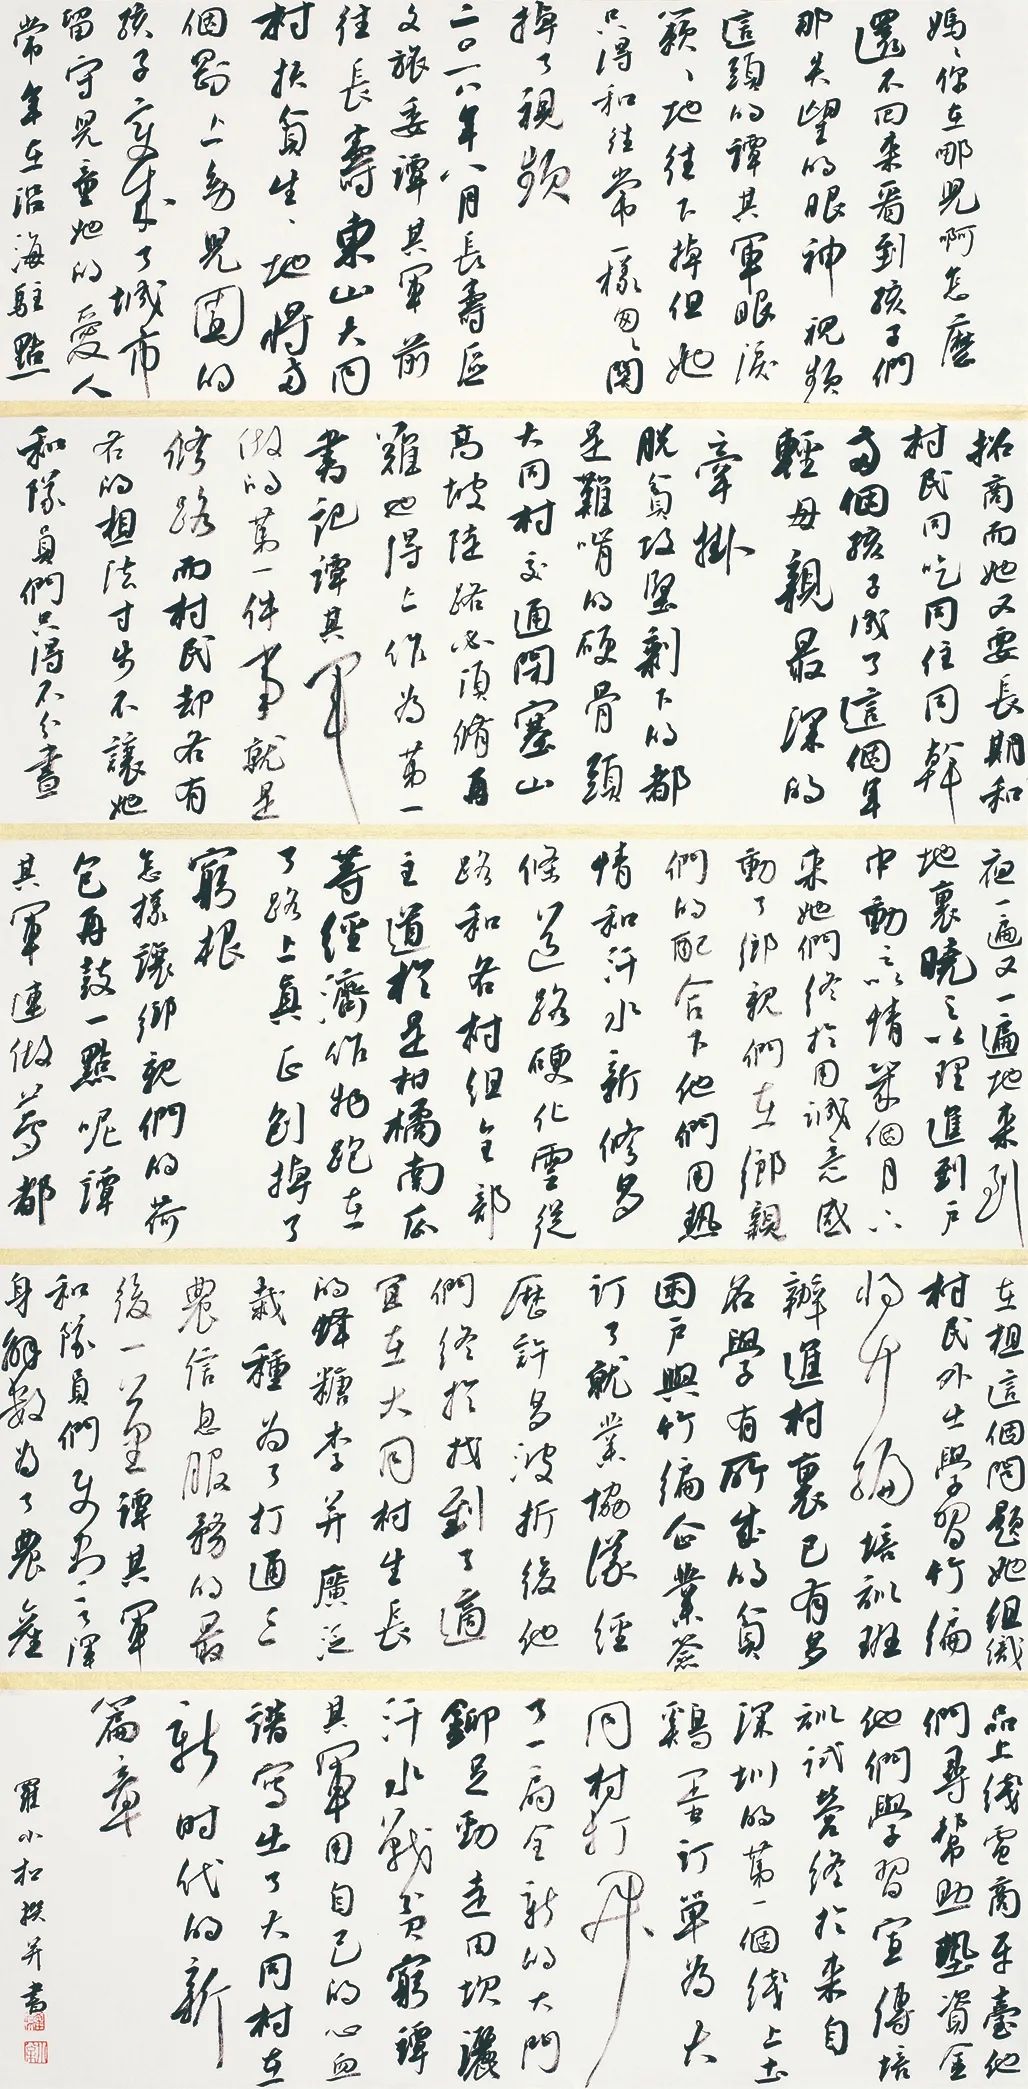 媽、你在哪兒啊怎麼
還不回来看到孩子們
那失望的眼神視頻
這頭的譚其軍眼淚
簌、地往下掉但她
只得和往常一樣匆、關
掉了視頻
二〇一八年八月長壽區
文旅委譚其軍前
往長壽東山大同
村扶貧生、地將两
個剛上幼兒園的
孩子变成了城市
留守兒童她的愛人
常年在沿海駐點
招商而她又要長期和
村民同吃同住同幹
两個孩子成了這個年
輕母親最深的
牽掛
脫貧攻堅剩下的都
是難啃的硬骨頭
大同村交通閉塞山
高坡陡路必須修再
難也得上作為第一
書記譚其軍
做的第一件事就是
修路而村民却各有
各的想法寸步不讓她
和隊員們只得不分晝
夜一遍又一遍地来到
地裏曉之以理進到户
中動之以情幾個月下
来她們終於用誠意感
動了鄉親們在鄉親
們的配合下他們用熱
情和汗水新修多
條道路硬化雲從
路和各村组全部
主道於是柑橘南瓜
等經濟作物跑在
了路上真正刨掉了
窮根
怎樣讓鄉親們的荷
包再鼓一點呢譚
其軍連做夢都
在想這個問題她组織
村民外出學習竹编
将竹编培訓班
辦進村裏已有多
名學有所成的貧
困户與竹编企業簽
訂了就業協議經
歷許多波折後他
們終於找到了適
宜在大同村生長
的蜂糖李并廣泛
栽種为了打通三
農信息服務的最
後一公里譚其軍
和隊員們使出了渾
身解数为了農産
品上线電商平臺他
們尋幫助墊資金
他們學習宣傳培
訓試營終於来自
深圳的第一個线上土
鷄蛋訂單為大
同村打开
了一扇全新的大門
鉚足勁走田坎灑
汗水戰貧窮譚
其軍用自己的心血
譜寫出了大同村在
新時代的新
篇章
羅小松撰并書